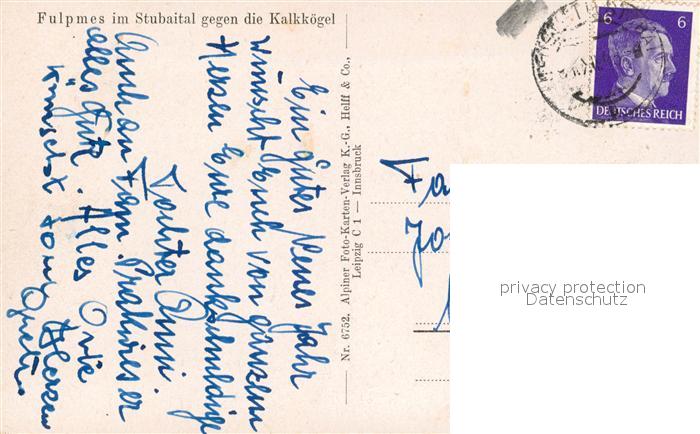 Fulpmes im Stubaital gegen die Kalkkögel
6 6
DEUTSCHES REICH
Ein gutes Neues Jahr
wünscht Euch von ganzem
Herzen Eure dankschuldige
Tochter Anni.
Auch an Fam.
alles Gute. Alles
wünscht
Nr. 6752. Alpiner Foto-Karten-Verlag K.-G., Helff & Co.,
Leipzig C 1 — Innsbruck
Fa
Jo
privacy protection
Datenschutz